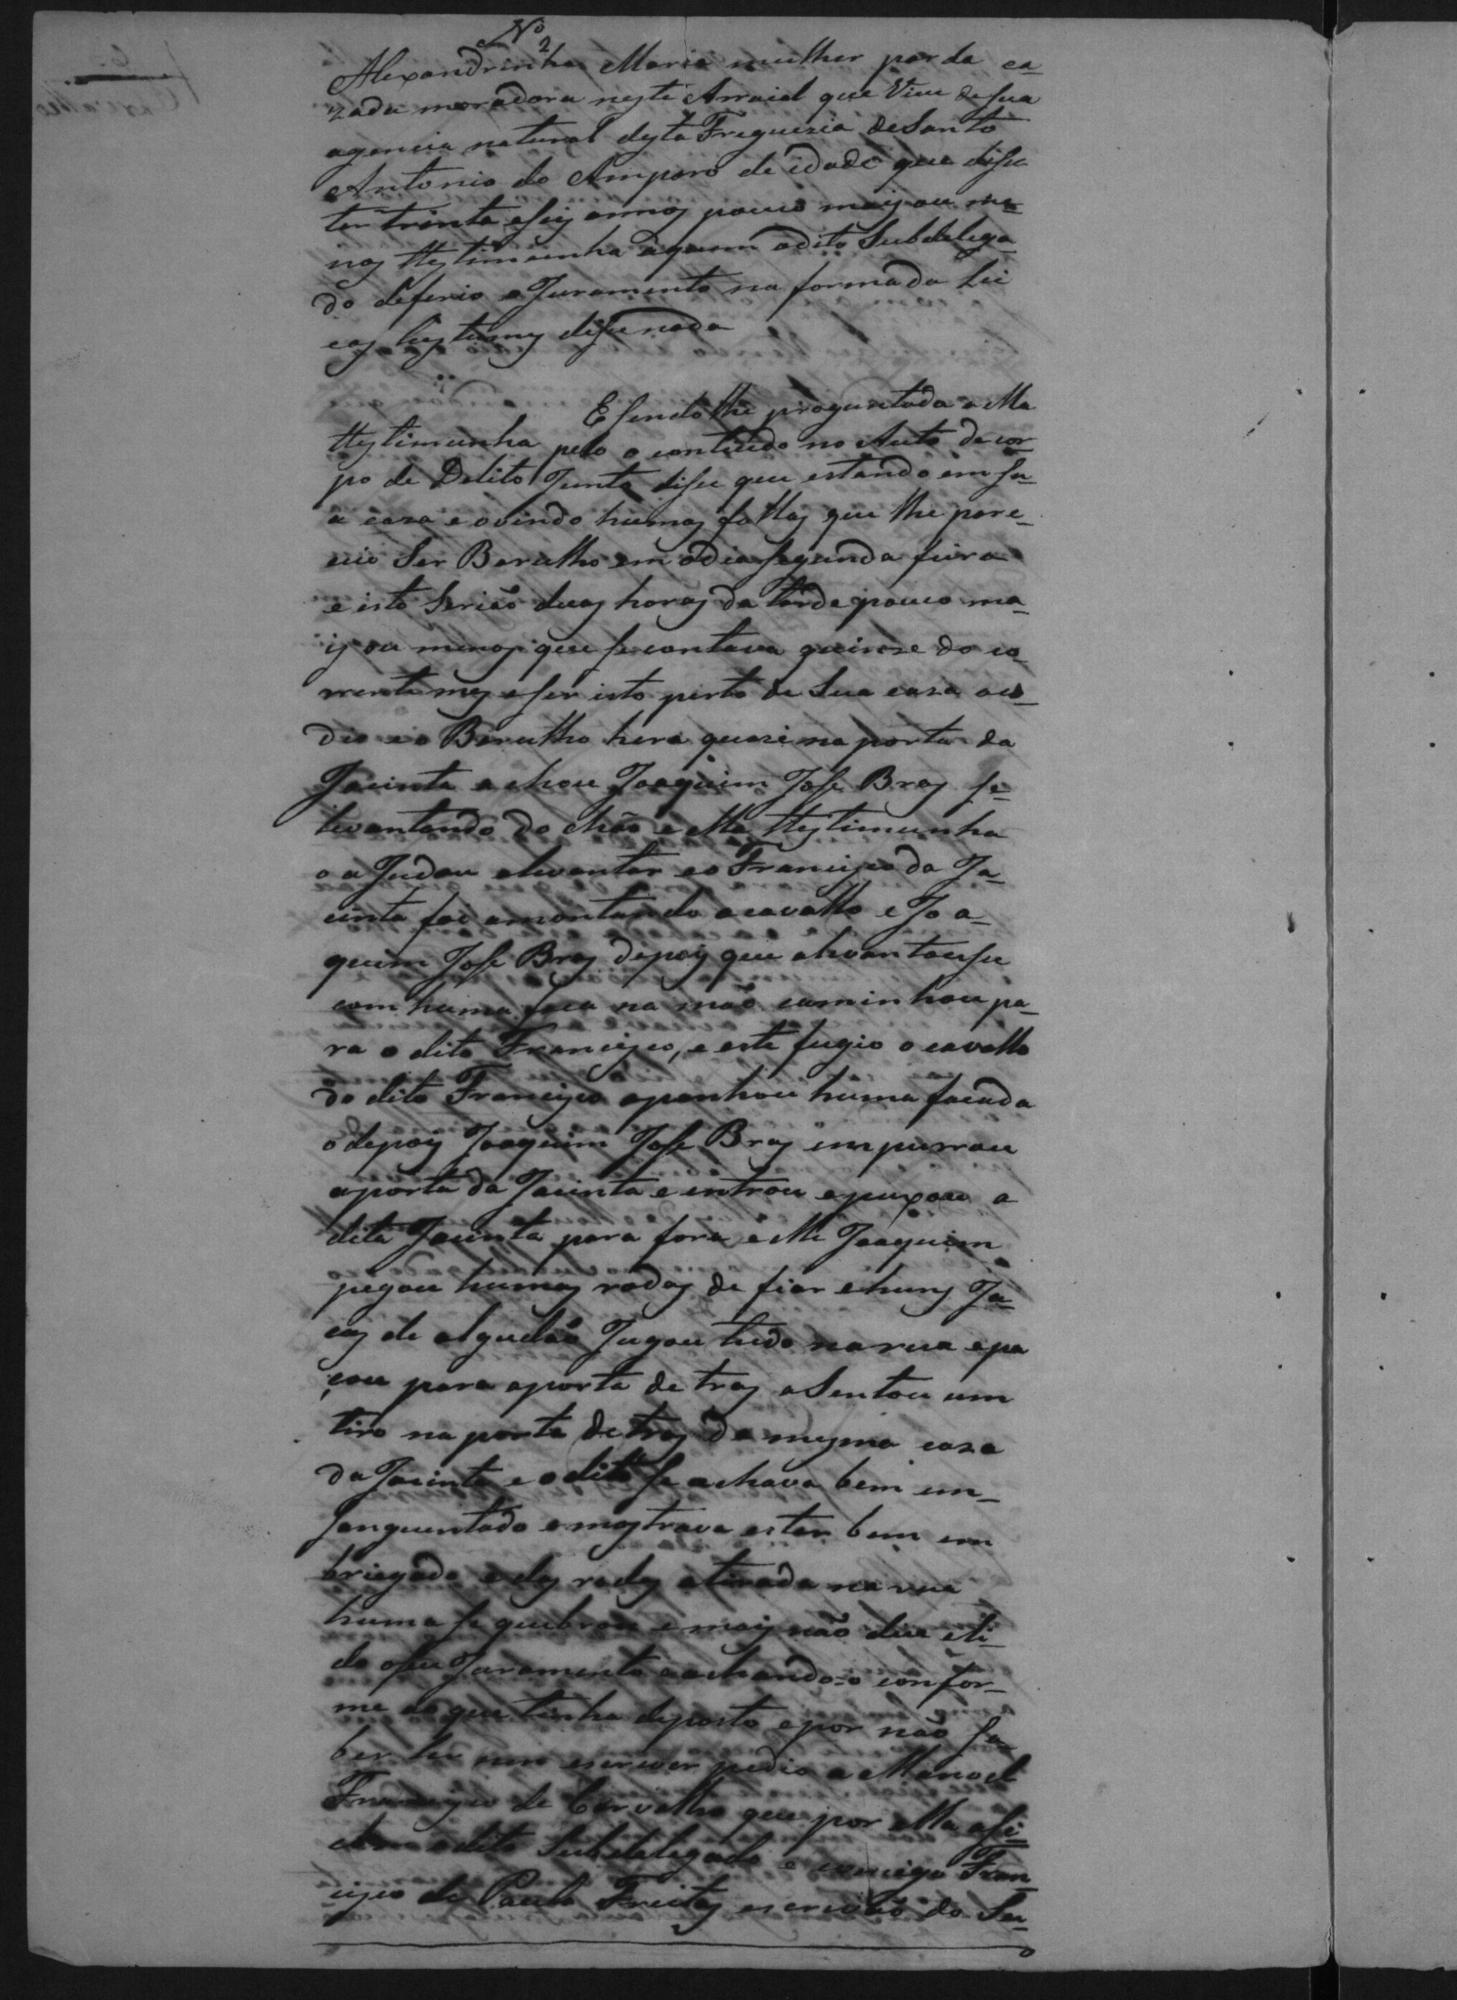 Nº 2
Alexandrinha Maria mulher parda ca-
zada moradora neste Arraial que Vive de sua
agencia natural desta Freguezia de Santo
Antonio do Amparo de idade que dise
ter trinta e seis annos pouco mais ou me-
nos testimunha aquem o dito Subdelega-
do deferio o Juramento na forma da Lei
e aos Custumes dise nada
E sendo lhe proguntada a ella
testimunha pelo o contiúdo no Auto de cor-
po de Delito Junto dise que estando em su-
a caza e ovindo humas fallas que lhe pare-
ceio Ser Barulho em o dia segunda feira
e isto serião duas horas da tarde pouco ma-
is ou menos que se contava quinze do co-
rrente mes e ser isto perto de Sua caza acu-
dio e o Barulho hera quazi na porta da
Jacinta achou Joaquim Jose Bras se
levantando do chão e ella testimunha
o aJudou alevantar e o Francisco da Ja-
cinta foi amontando acavallo e Joa-
quim Jose Bras depois que alevantouse
com huma faca na mão caminhou pa-
ra o dito Francisco, e este fugio o cavallo
do dito Francisco apanhou huma facada
e depois Joaquim Jose Bras empurrou
aporta da Jacinta e entrou epuxou a
dita Jacinta para fora e elle Joaquim
pegou humas rodas de fiar e huns Ja-
cas de algudão Jugou tudo narua epa
çou para aporta de tras aSentou um
tiro na porta de tras da mesma caza
da Jacinta e o dito se achava bem en-
sanguentado e mostrava estar bem em
briagado e das rodas atirada na rua
huma se quebrou e mais não dise e li-
do oseu Juramento e achando-o confor-
me ao que tinha deposto e por não sa-
ber ler nem escrever pedio a Manoel
Francisco de Carvalho que por ella asi-
o dito Subdelegado e comigo Fran-
cisco de Paula Freitas escrivão do Su-